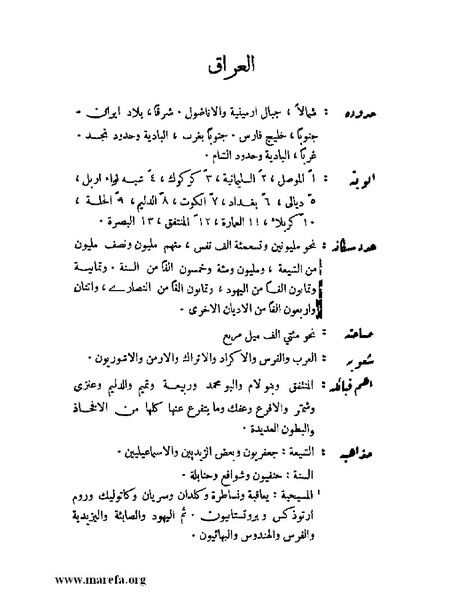 العراق
حدوده : شمالاً ، جبال ارمينية والاناضول . شرقا ، بلاد ايران .
جنوبا ، خليج فارس . جنوبا بغرب ، البادية وحدود نجد .
غربا ، البادية وحدود الشام .
الويته : ١ الموصل ، ٢ السليمانية ، ٣ كركوك ، ٤ شبه لواء اربل ،
٥ ديالى ، ٦ بغداد ، ٧ الكوت ، ٨ الدليم ، ٩ الحلة ،
١٠ كربلاء ، ١١ العمارة ، ١٢ المنتفق ، ١٣ البصرة .
عدد سكانه : نحو مليونين وتسعمئة الف نفس ، منهم مليون ونصف مليون
من الشيعة ، ومليون ومئة وخمسون الفا من السنة . وثمانية
وثمانون الفا من اليهود ، وثمانون الفا من النصارى ، واثنان
واربعون الفا من الاديان الاخرى .
مساحته : نحو مئتي الف ميل مربع
شعوبه : العرب والفرس والاكراد والاتراك والارمن والاشوريون .
اهم قبائله : المنتفق وبنو لام والبو محمد وربيعة وتميم والدليم وعنزى
وشمر والاقرع وعفك وما يتفرع عنها كلها من الافخاذ
والبطون العديدة .
مذاهبه : الشيعة : جعفريون وبعض الزيديين والاسماعيليين .
السنة : حنفيون وشوافع وحنابلة .
المسيحية : يعاقبة ونساطرة وكلدان وسريان وكاثوليك وروم
ارثوذكس وبروتستانيون . ثم اليهود والصابئة واليزيدية
والفرس والهندوس والبهائيون .
www.marefa.org